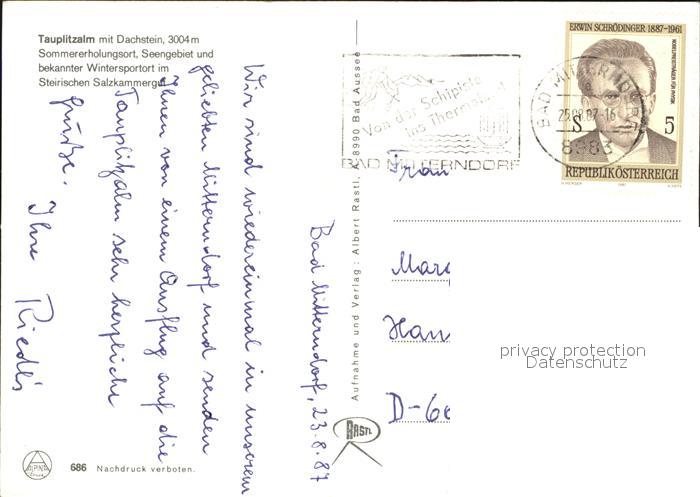 Tauplitzalm mit Dachstein, 3004 m
Sommererholungsort, Seengebiet und
bekannter Wintersportort im
Steirischen Salzkammergut
Bad Mitterndorf, 23.8.87
Wir sind wiedereinmal in unserem
geliebten Mitterndorf und senden
Ihnen von einem Ausflug auf die
Tauplitzalm sehr herzliche
Grüße.
Ihre Riedl's
Aufnahme und Verlag: Albert Rastl, A 8990 Bad Aussee
RASTL
ALPINA
Druck
686 Nachdruck verboten.
Von der Schipiste
ins Thermalbad
BAD MITTERNDORF
BAD MITTERNDORF
25.08.87-16
8983
ERWIN SCHRÖDINGER 1887-1961
NOBELPREISTRÄGER FÜR PHYSIK
S 5
REPUBLIK ÖSTERREICH
1987
Frau
Mar
Han
D-6
privacy protection
Datenschutz